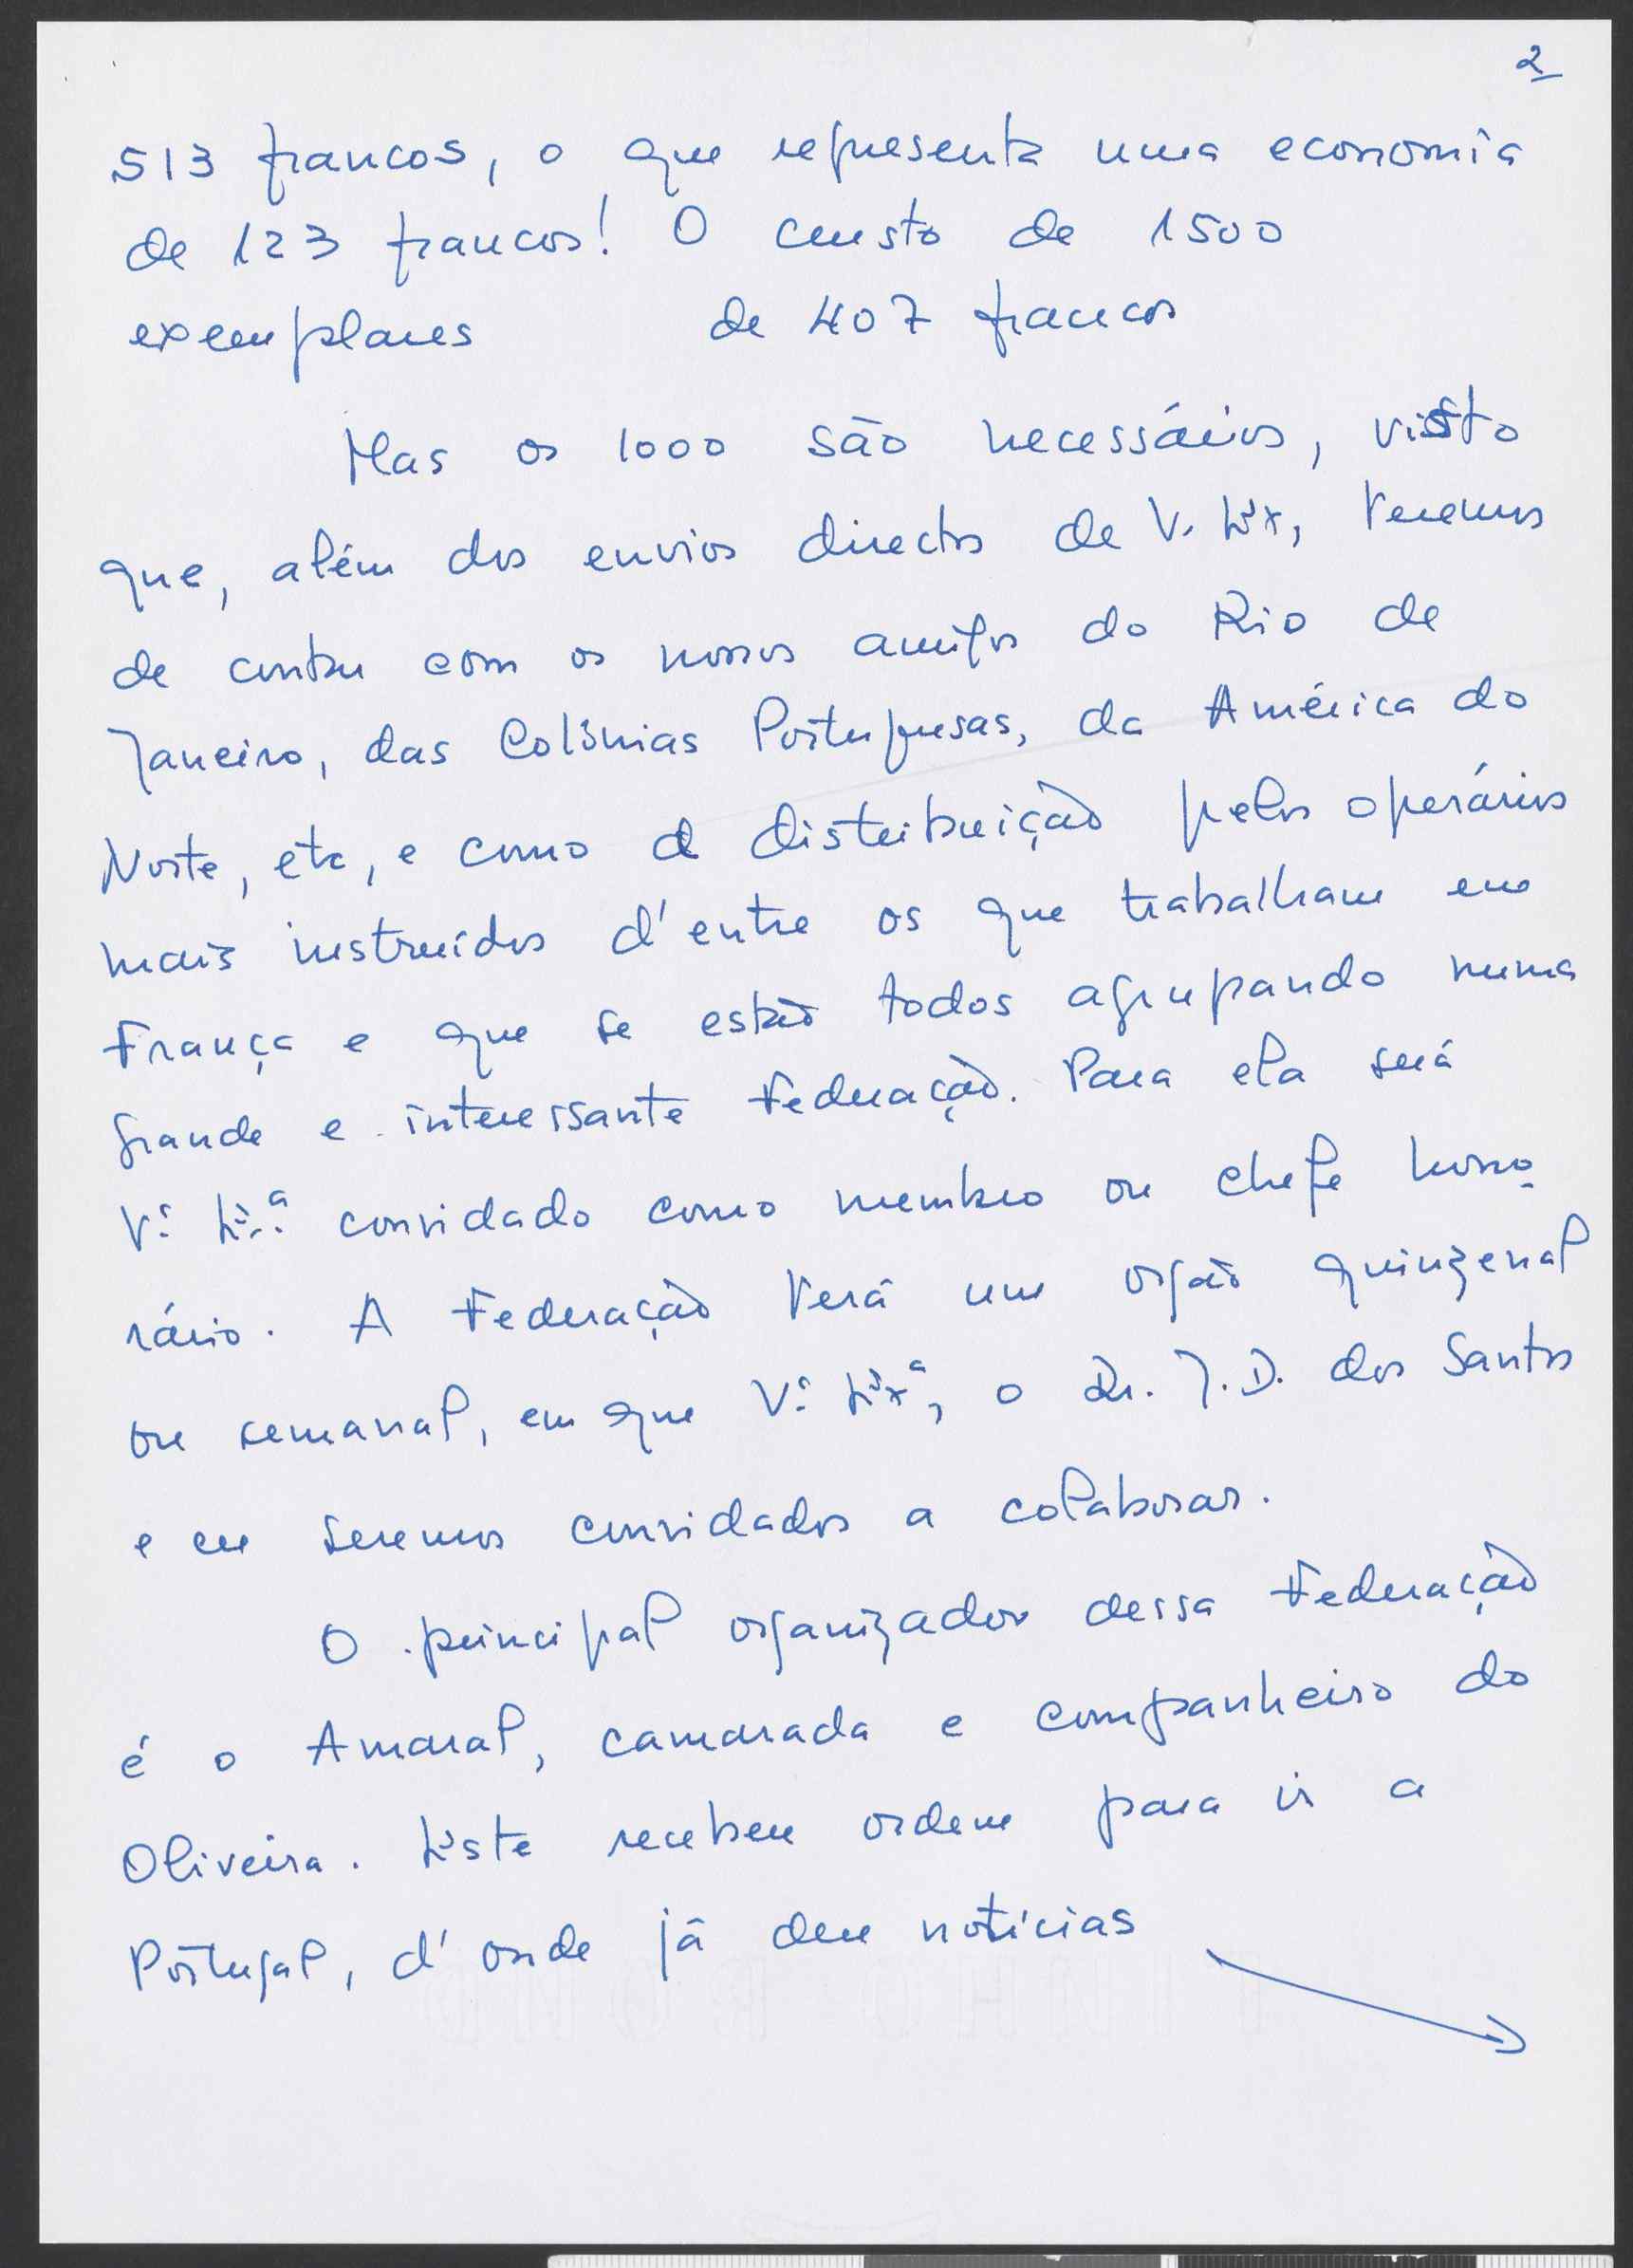 2
513 francos, o que representa uma economia
de 123 francos! O custo de 1500
exemplares de 407 francos
Mas os 1000 são necessários, visto
que, além dos envios directos de V. Ex, teremos
de contar com os nossos amigos do Rio de
Janeiro, das Colónias Portuguesas, da América do
Norte, etc, e como a distribuição pelos operários
mais instruídos d'entre os que trabalham em
França e que se estão todos agrupando numa
grande e interessante Federação. Para ela será
Vª Exª convidado como membro ou chefe hono
rário. A Federação terá um orgão quinzenal
ou semanal, em que Vª Exª, o Dr. J. D. dos Santos
e eu seremos convidados a colaborar.
O principal organizador dessa Federação
é o Amaral, camarada e companheiro do
Oliveira. Este recebeu ordem para ir a
Portugal, d'onde já deu notícias